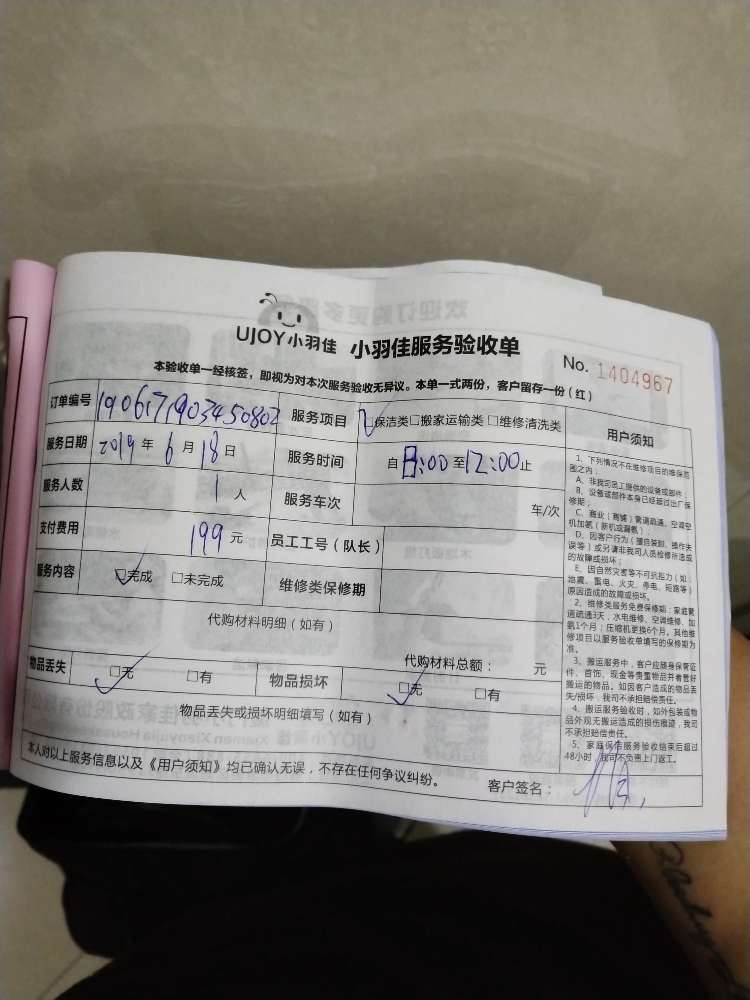 UJOY小羽佳 小羽佳服务验收单
No. 1404967
本验收单一经核签，即视为对本次服务验收无异议。本单一式两份，客户留存一份（红）
订单编号 1906171903450802 服务项目 □保洁类□搬家运输类□维修清洗类
服务日期 2019 年 6 月 18 日 服务时间 自 8:00 至 12:00 止
服务人数 1 人 服务车次 车/次
支付费用 199 元 员工工号（队长）
服务内容 □完成 □未完成 维修类保修期
代购材料明细（如有）
代购材料总额： 元
物品丢失 □无 □有 物品损坏 □无 □有
物品丢失或损坏明细填写（如有）
本人对以上服务信息以及《用户须知》均已确认无误，不存在任何争议纠纷。
客户签名：
用户须知
1、下列情况不在维修项目的维保范
围之内：
A、非我司员工提供的设备或部件；
B、设备或部件本身已经超过出厂保
修期；
C、商业（商铺）管道疏通、空调空
机加氨（新机或漏氨）；
D、因客户行为（擅自装卸、操作失
误等）或另请非我司人员检修所造成
的故障或损坏；
E、因自然灾害等不可抗拒力（如：
地震、雷电、火灾、停电、短路等）
原因造成的故障或损坏。
2、维修类服务免费保修期：家庭管
道疏通3天；水电维修、空调维修、加
氨1个月；压缩机更换6个月。其他维
修项目以服务验收单填写的保修期为
准。
3、搬运服务中，客户应随身保管证
件、首饰、现金等贵重物品并看管好
搬运的物品。如因客户造成的物品丢
失/损坏，我司不承担赔偿责任。
4、搬运服务验收时，如外包装或物
品外观无搬运造成的损伤痕迹，我司
不承担赔偿责任。
5、家庭保洁服务验收结束后超过
48小时，我司不负责上门返工。